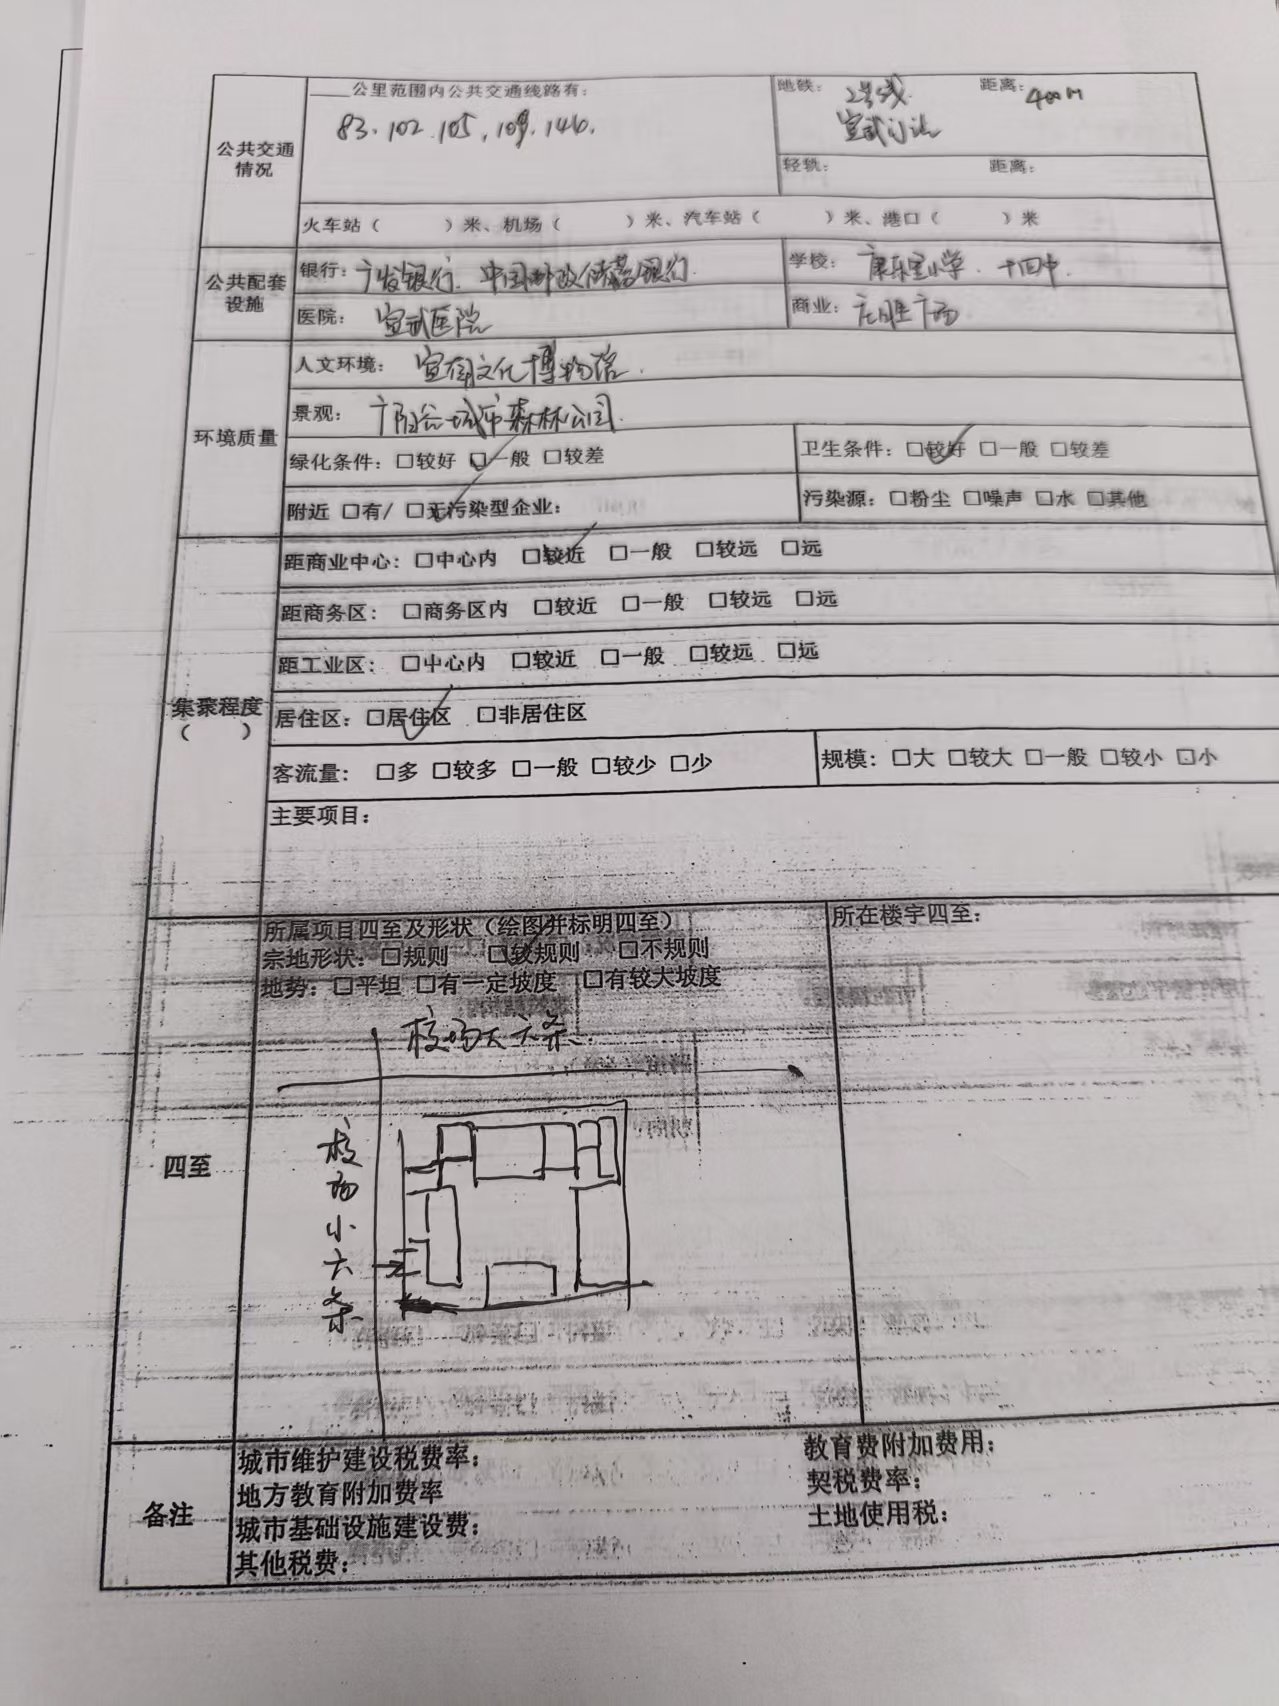 公共交通情况
____公里范围内公共交通线路有：
83. 102. 105. 109. 146.
地铁： 2号线 距离： 400M
宣武门站
轻轨： 距离：
火车站（ ）米、机场（ ）米、汽车站（ ）米、港口（ ）米
公共配套设施
银行：广发银行. 中国邮政储蓄银行. 学校： 康乐里小学. 十四中.
医院： 宣武医院 商业：庄胜广场
环境质量
人文环境： 宣南文化博物馆.
景观： 广阳谷城市森林公园.
绿化条件：□较好 □一般 □较差 卫生条件：□较好 □一般 □较差
附近 □有/ □无污染型企业： 污染源：□粉尘 □噪声 □水 □其他
集聚程度
（ ）
距商业中心：□中心内 □较近 □一般 □较远 □远
距商务区： □商务区内 □较近 □一般 □较远 □远
距工业区： □中心内 □较近 □一般 □较远 □远
居住区：□居住区 □非居住区
客流量： □多 □较多 □一般 □较少 □少 规模：□大 □较大 □一般 □较小 □小
主要项目：
四至
所属项目四至及形状（绘图并标明四至） 所在楼宇四至：
宗地形状：□规则 □较规则 □不规则
地势：□平坦 □有一定坡度 □有较大坡度
校场大六条
校场小六条
备注
城市维护建设税费率： 教育费附加费用：
地方教育附加费率 契税费率：
城市基础设施建设费： 土地使用税：
其他税费：